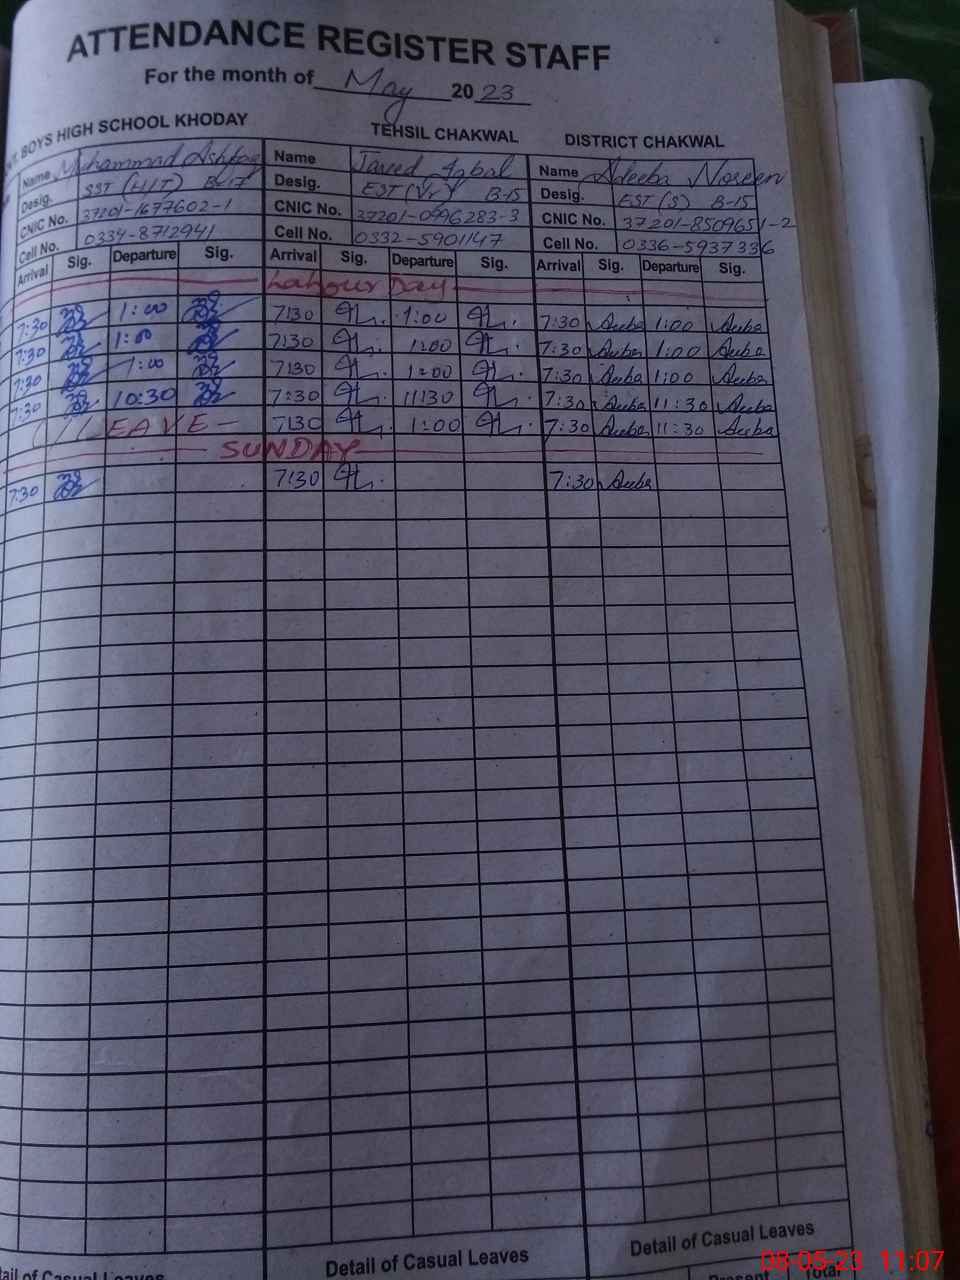 ATTENDANCE REGISTER STAFF
For the month of May 2023
BOYS HIGH SCHOOL KHODAY TEHSIL CHAKWAL DISTRICT CHAKWAL
Name Muhammad Ashfaq Name Javed Iqbal Name Adeeba Noreen
Desig. SST (HIT) B-17 Desig. EST (Vr) B-15 Desig. EST (S) B-15
CNIC No. 37201-1677602-1 CNIC No. 37201-0996283-3 CNIC No. 37201-8509651-2
Cell No. 0334-8712941 Cell No. 0332-5901147 Cell No. 0336-5937336
Arrival Sig. Departure Sig. Arrival Sig. Departure Sig. Arrival Sig. Departure Sig.
Labour Day
7:30 1:00 7:30 1:00 7:30 1:00
7:30 1:00 7:30 1:00 7:30 1:00
7:30 1:00 7:30 1:00 7:30 1:00
7:30 10:30 7:30 11:30 7:30 11:30
LEAVE 7:30 1:00 7:30 11:30
SUNDAY
7:30 7:30 7:30
Detail of Casual Leaves Detail of Casual Leaves Detail of Casual Leaves
Present Total
08-05-23 11:07